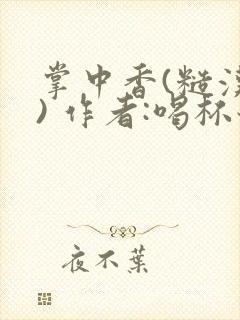 掌中香(糙
) 作者:喝杯
夜不葉